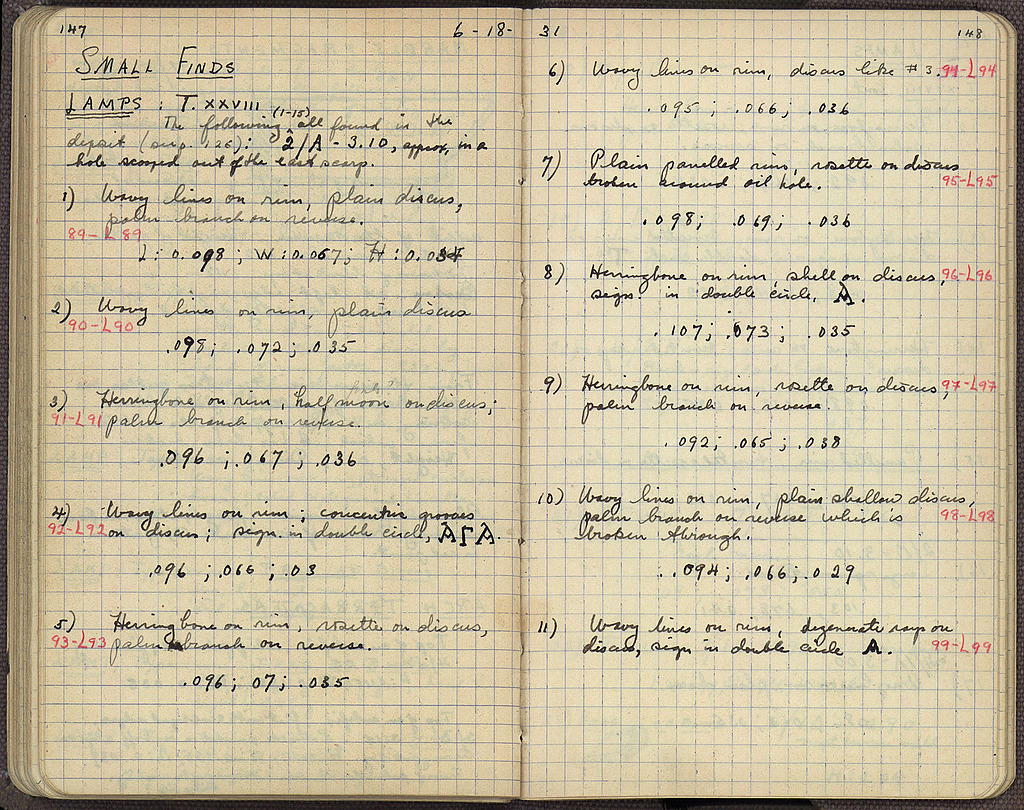 147
6-18-
SMALL FINDS
LAMPS: T. XXVIII
(1-15)
The following all found in the
deposit (see p. 126): 2/A - 3.10, approx, in a
hole scooped out of the east scarp.
1) Wavy lines on rim, plain discus,
palm branch on reverse.
89-L89
L: 0.098; W: 0.067; H: 0.034
2) Wavy lines on rim, plain discus
90-L90
.098; .072; .035
3) Herringbone on rim, half moon on discus;
91-L91 palm branch on reverse.
.096; .067; .036
4) Wavy lines on rim; concentric grooves
92-L92 on discus; sign. in double circle, ΑΓΑ.
.096; .066; .03
5) Herringbone on rim, rosette on discus,
93-L93 palm branch on reverse.
.096; 07; .035
31
148
6) Wavy lines on rim, discus like #3. 94-L94
.095; .066; .036
7) Plain panelled rim, rosette on discus
broken around oil hole. 95-L95
.098; .069; .036
8) Herringbone on rim, shell on discus, 96-L96
sign. in double circle, Α.
.107; .073; .035
9) Herringbone on rim, rosette on discus, 97-L97
palm branch on reverse.
.092; .065; .038
10) Wavy lines on rim, plain shallow discus,
palm branch on reverse which is 98-L98
broken through.
.094; .066; .029
11) Wavy lines on rim, degenerate rays on
discus, sign in double circle Α. 99-L99